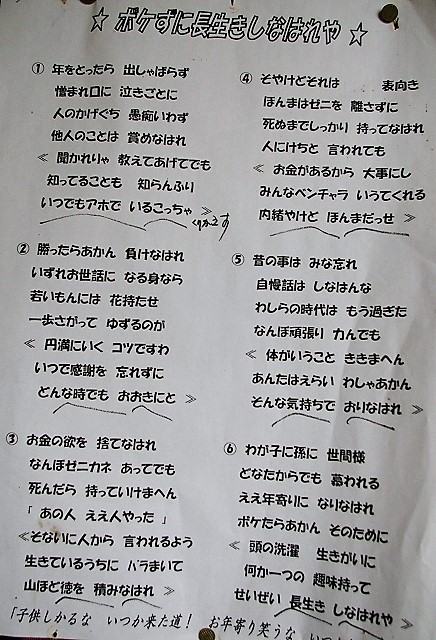 ☆ ボケずに長生きしなはれや ☆
① 年をとったら 出しゃばらず
憎まれ口に 泣きごとに
人のかげぐち 愚痴いわず
他人のことは 賞めなはれ
≪ 聞かれりゃ 教えてあげてでも
知ってることも 知らんふり
いつでもアホで いるこっちゃ ≫
くりかえす
② 勝ったらあかん 負けなはれ
いずれお世話に なる身なら
若いもんには 花持たせ
一歩さがって ゆずるのが
≪ 円満にいく コツですわ
いつで感謝を 忘れずに
どんな時でも おおきにと ≫
③ お金の欲を 捨てなはれ
なんぼゼニカネ あってでも
死んだら 持っていけまへん
「 あの人 ええ人やった 」
≪そないに人から 言われるよう
生きているうちに バラまいて
山ほど徳を 積みなはれ ≫
④ そやけどそれは 表向き
ほんまはゼニを 離さずに
死ぬまでしっかり 持ってなはれ
人にけちと 言われても
≪ お金があるから 大事にし
みんなベンチャラ いうてくれる
内緒やけど ほんまだっせ ≫
⑤ 昔の事は みな忘れ
自慢話は しなはんな
わしらの時代は もう過ぎた
なんぼ頑張り 力んでも
≪ 体がいうこと ききまへん
あんたはえらい わしゃあかん
そんな気持ちで おりなはれ ≫
⑥ わが子に孫に 世間様
どなたからでも 慕われる
ええ年寄りに なりなはれ
ボケたらあかん そのために
≪ 頭の洗濯 生きがいに
何か一つの 趣味持って
せいぜい 長生き しなはれや ≫
「子供しかるな いつか来た道! お年寄り笑うな